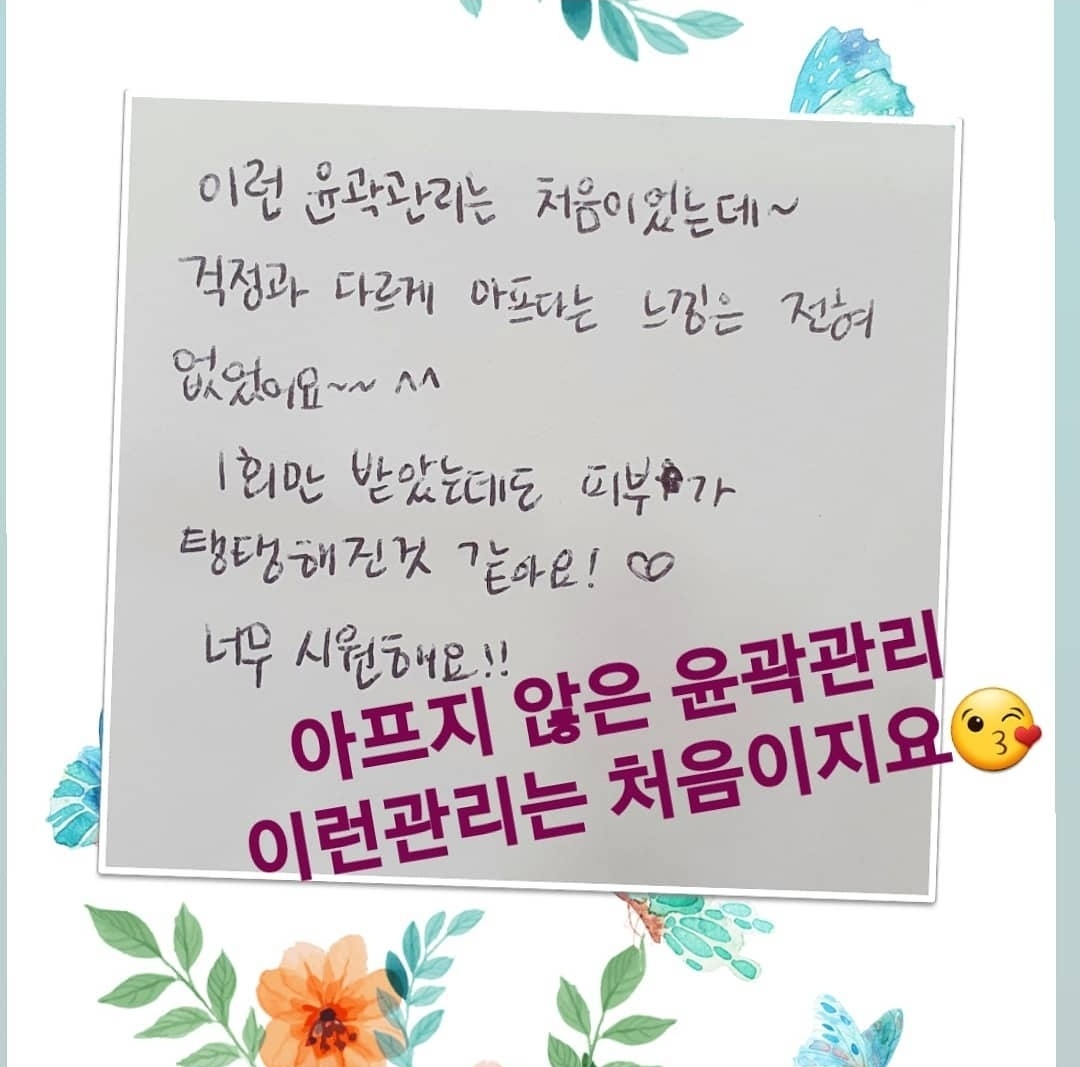 이런 윤곽관리는 처음이었는데~
걱정과 다르게 아프다는 느낌은 전혀
없었어요~~ ^^
1회만 받았는데도 피부가
탱탱해진것 같아요! ♡
너무 시원해요!!
아프지 않은 윤곽관리
이런관리는 처음이지요😘